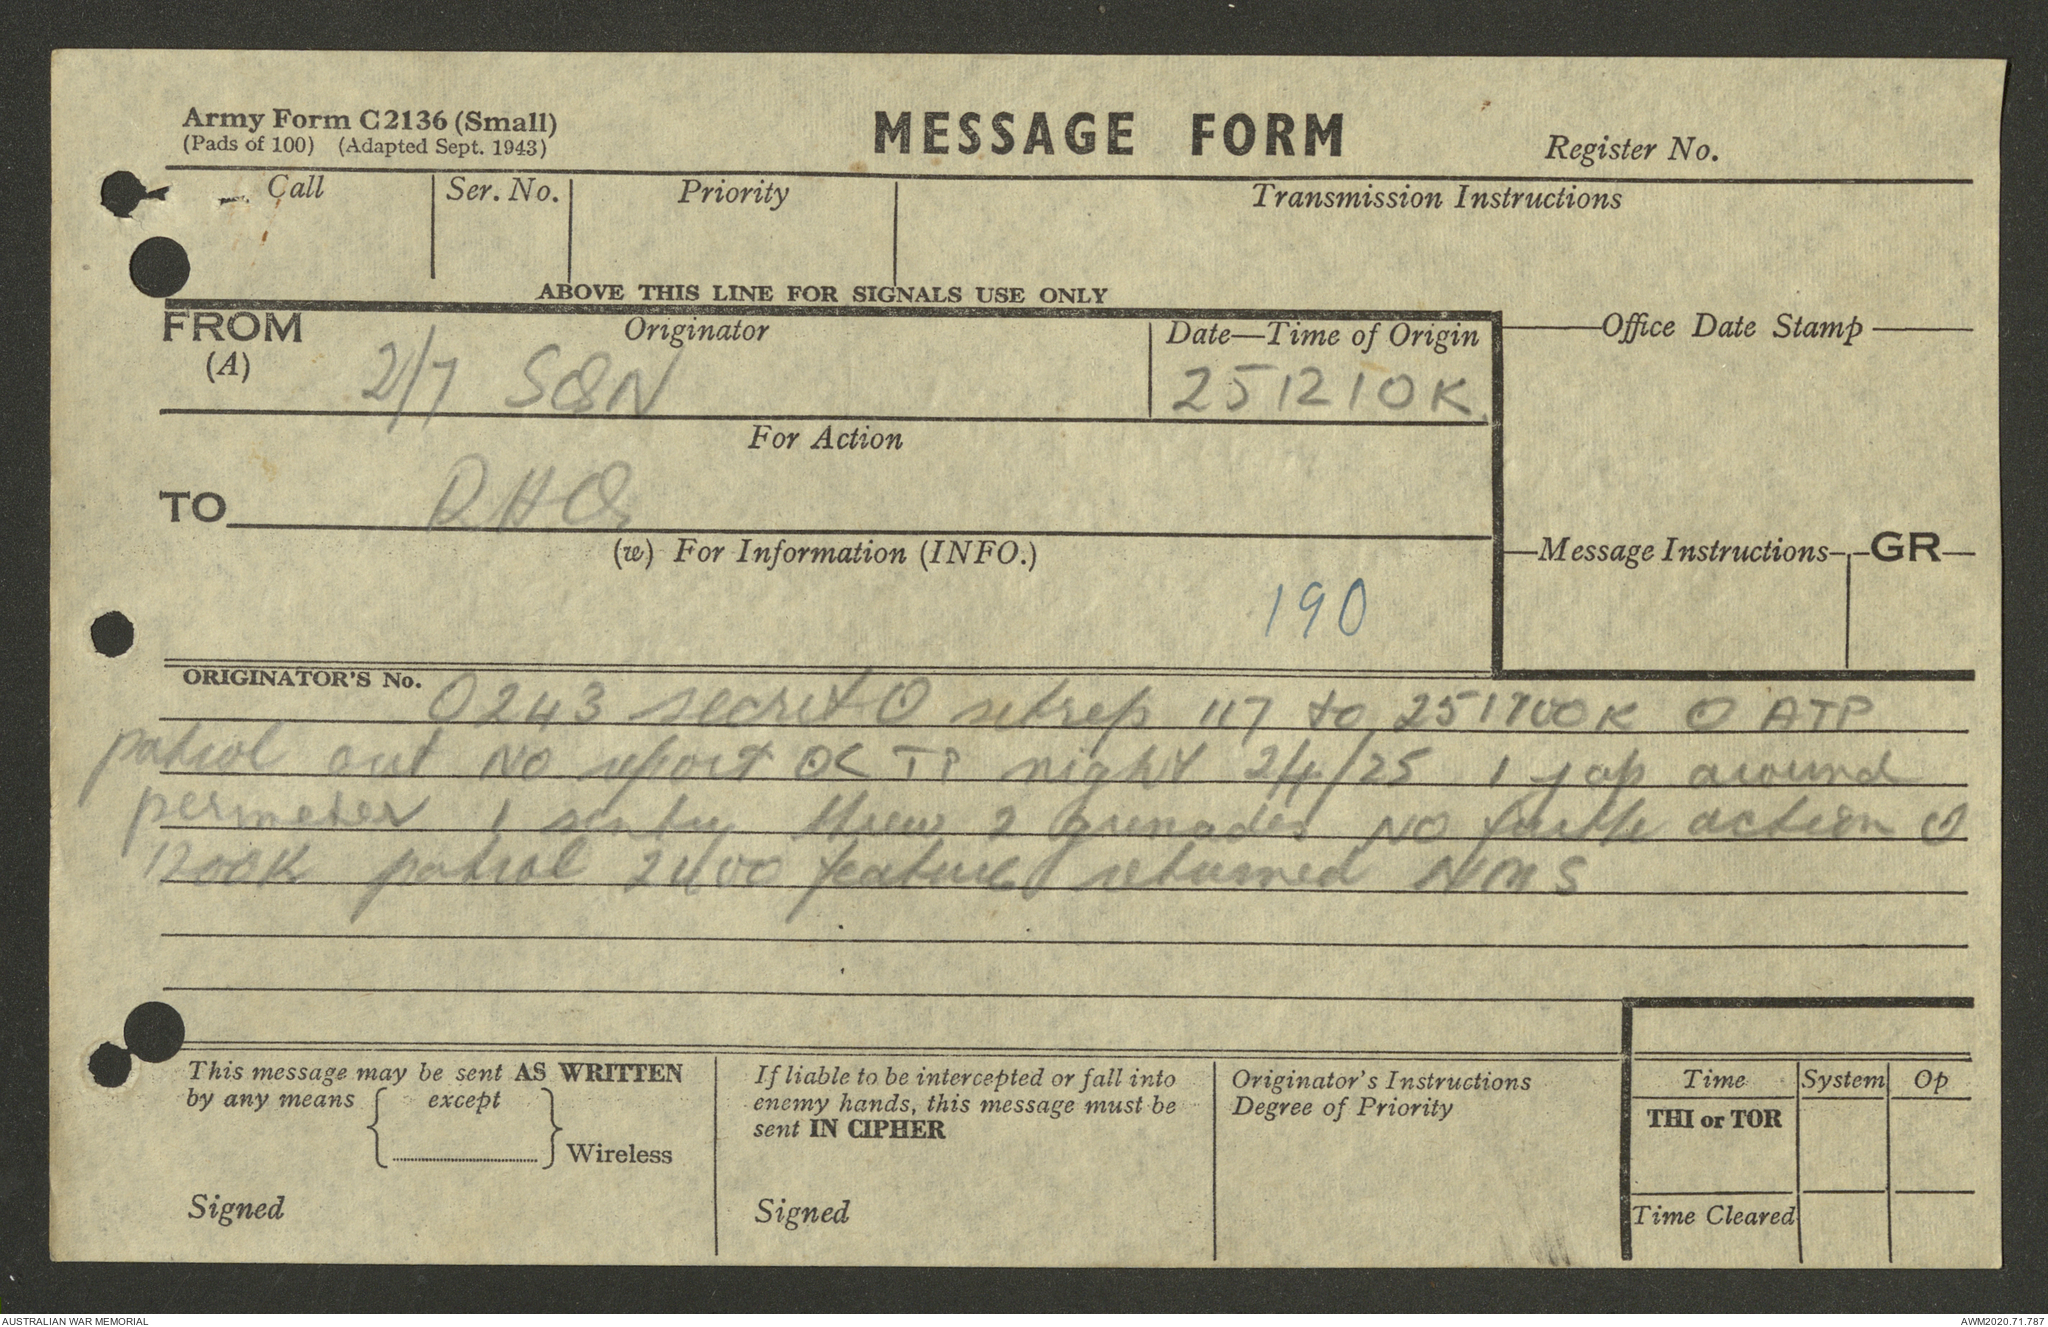 Army Form C2136 (Small)
(Pads of 100) (Adapted Sept. 1943)
MESSAGE FORM
Register No.
Call Ser. No. Priority Transmission Instructions
ABOVE THIS LINE FOR SIGNALS USE ONLY
FROM (A) Originator Date—Time of Origin Office Date Stamp
2/7 SQN 251210K
For Action
TO RHQ
(w) For Information (INFO.) Message Instructions GR
190
ORIGINATOR'S No.
O243 secret O sitrep 117 to 251200K O ATP
patrol out NO report OC TP night 24/25 1 jap around
perimeter 1 sentry threw 2 grenades NO further action O
1200K patrol 2400 feature returned NMS
This message may be sent AS WRITTEN
by any means except
Wireless
Signed
If liable to be intercepted or fall into
enemy hands, this message must be
sent IN CIPHER
Signed
Originator's Instructions
Degree of Priority
Time System Op
THI or TOR
Time Cleared
AUSTRALIAN WAR MEMORIAL
AWM2020.71.787